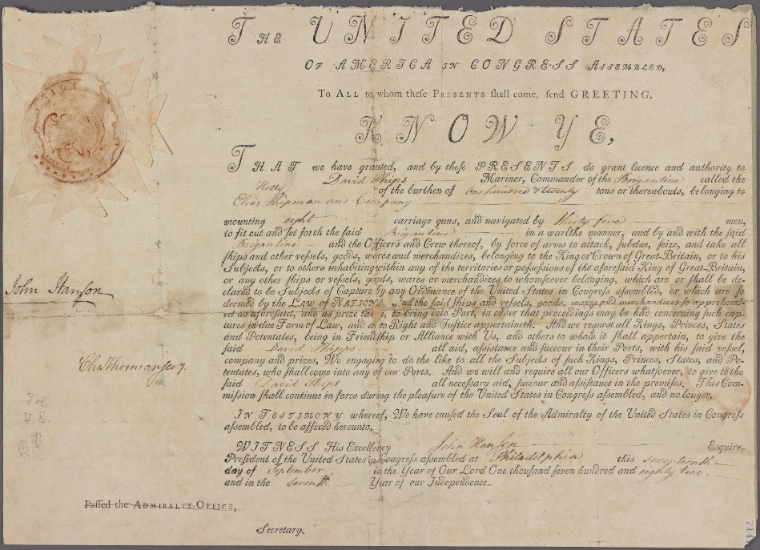 THE UNITED STATES
OF AMERICA IN CONGRESS ASSEMBLED,
To ALL to whom these PRESENTS shall come, send GREETING.
KNOW YE,
THAT we have granted, and by these PRESENTS do grant licence and authority to
David Phips Mariner, Commander of the Brigantine called the
Holly of the burthen of one hundred & twenty tons or thereabouts, belonging to
Elias Shipman and Company
mounting eight carriage guns, and navigated by thirty five men,
to fit out and set forth the said Brigantine in a warlike manner, and by and with the said
Brigantine and the Officers and Crew thereof, by force of arms to attack, subdue, seize, and take all
ships and other vessels, goods, wares and merchandizes, belonging to the King or Crown of Great-Britain, or to his
Subjects, or to others inhabiting within any of the territories or possessions of the aforesaid King of Great-Britain,
or any other ships or vessels, goods, wares or merchandizes to whomsoever belonging, which are or shall be de-
clared to be Subjects of Capture by any Ordinance of the United States in Congress assembled, or which are so
deemed by the LAW of NATIONS. And the said Ships and vessels, goods, wares and merchandizes so apprehend-
ed as aforesaid, and as prize taken, to bring into Port, in order that proceedings may be had concerning such cap-
tures in due Form of Law, and as to Right and Justice appertaineth. And we request all Kings, Princes, States
and Potentates, being in Friendship or Alliance with Us, and others to whom it shall appertain, to give the
said David Phipps all aid, assistance and succour in their Ports, with his said vessel,
company and prizes, We engaging to do the like to all the Subjects of such Kings, Princes, States, and Po-
tentates, who shall come into any of our Ports. And we will and require all our Officers whatsoever, to give to the
said David Phips all necessary aid, succour and assistance in the premises. This Com-
mission shall continue in force during the pleasure of the United States in Congress assembled, and no longer.
John Hanson
Cha Thomson secy.
IN TESTIMONY whereof, We have caused the Seal of the Admiralty of the United States in Congress
assembled, to be affixed hereunto.
WITNESS His Excellency John Hanson Esquire,
President of the United States in Congress assembled at Philadelphia this seventeenth
day of September in the Year of Our Lord One thousand seven hundred and eighty two
and in the seventh Year of our Independence.
Passed the ADMIRALTY-OFFICE,
Secretary.
714